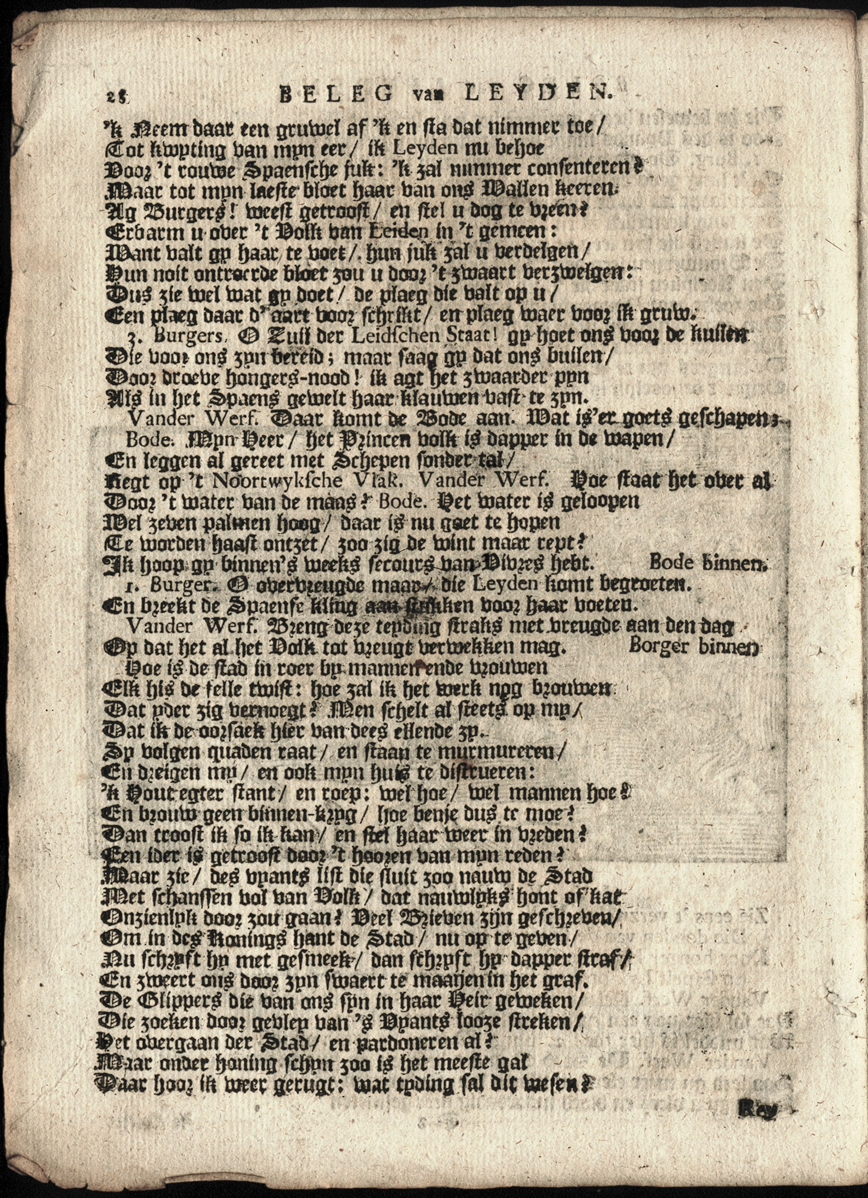 28 BELEG van LEYDEN.
'k Neem daar een gruwel af 'k en sta dat nimmer toe/
Tot kwyting van myn eer/ ik Leyden nu behoe
Voor 't rouwe Spaensche juk: 'k zal nimmer consenteren?
Maar tot myn laeste bloet haar van ons Wallen keeren.
Ag Burgers! weest getroost/ en stel u dog te vreen?
Erbarm u over 't Volk van Leiden in 't gemeen:
Want valt gy haar te voet/ hun juk zal u verdelgen/
Hun noit ontroerde bloet zou u door 't zwaart verzwelgen:
Dus zie wel wat gy doet/ de plaeg die valt op u/
Een plaeg daar d'aart voor schrikt/ en plaeg waer voor ik gruw.
3. Burgers. O Tuil der Leidschen Staat! gy hoet ons voor de kuilen
Die voor ons zyn bereid; maar saag gy dat ons builen/
Door droeve hongers-nood! ik agt het zwaarder pyn
Als in het Spaens gewelt haar klauwen vast te zyn.
Vander Werf. Daar komt de Bode aan. Wat is'er goets geschapen?
Bode. Myn Heer/ het Princen volk is dapper in de wapen/
En leggen al gereet met Schepen sonder tal/
Regt op 't Noortwyksche Vlak. Vander Werf. Hoe staat het over al
Door 't water van de maas? Bode. Het water is geloopen
Wel zeven palmen hoog/ daar is nu goet te hopen
Te worden haast ontzet/ zoo zig de wint maar rept?
Ik hoop gy binnen's weeks secours van Vivres hebt. Bode binnen.
1. Burger. O overvreugde maar/ die Leyden komt begroeten.
En breekt de Spaense kling aan stukken voor haar voeten.
Vander Werf. Breng deze teyding straks met vreugde aan den dag
Op dat het al het Volk tot vreugt verwekken mag. Borger binnen
Hoe is de stad in roer by mannen ende vrouwen
Elk his de felle twist: hoe zal ik het werk nog brouwen
Dat yder zig vernoegt? Men schelt al steets op my/
Dat ik de oorsaek hier van dees ellende zy.
Sy volgen quaden raat/ en staan te murmureren/
En dreigen my/ en ook myn huis te distrueren:
'k Hout egter stant/ en roep: wel hoe/ wel mannen hoe?
En brouw geen binnen-kryg/ hoe benje dus te moe?
Dan troost ik so ik kan/ en stel haar weer in vreden?
Een ider is getroost door 't hooren van myn reden?
Maar zie/ des vyants list die sluit zoo nauw de Stad
Met schanssen vol van Volk/ dat nauwlyks hont of kat
Onzienlyk door zou gaan? Veel Brieven zijn geschreven/
Om in des Konings hant de Stad/ nu op te geven/
Nu schryft hy met gesmeek/ dan schryft hy dapper straf/
En zweert ons door zyn swaert te maayen in het graf.
De Glippers die van ons syn in haar Heir geweken/
Die zoeken door gevley van 's Vyants looze streken/
Het overgaan der Stad/ en pardoneren al?
Maar onder honing schyn zoo is het meeste gal
Daar hoor ik weer gerugt: wat tyding sal dit wesen?
Rey